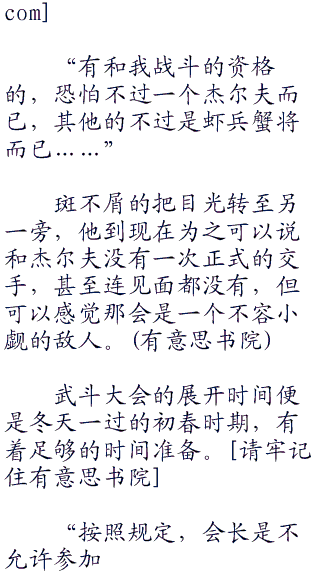 com]
“有和我战斗的资格
的，恐怕不过一个杰尔夫而
已，其他的不过是虾兵蟹将
而已……”
斑不屑的把目光转至另
一旁，他到现在为之可以说
和杰尔夫没有一次正式的交
手，甚至连见面都没有，但
可以感觉那会是一个不容小
觑的敌人。(有意思书院)
武斗大会的展开时间便
是冬天一过的初春时期，有
着足够的时间准备。[请牢记
住有意思书院]
“按照规定，会长是不
允许参加